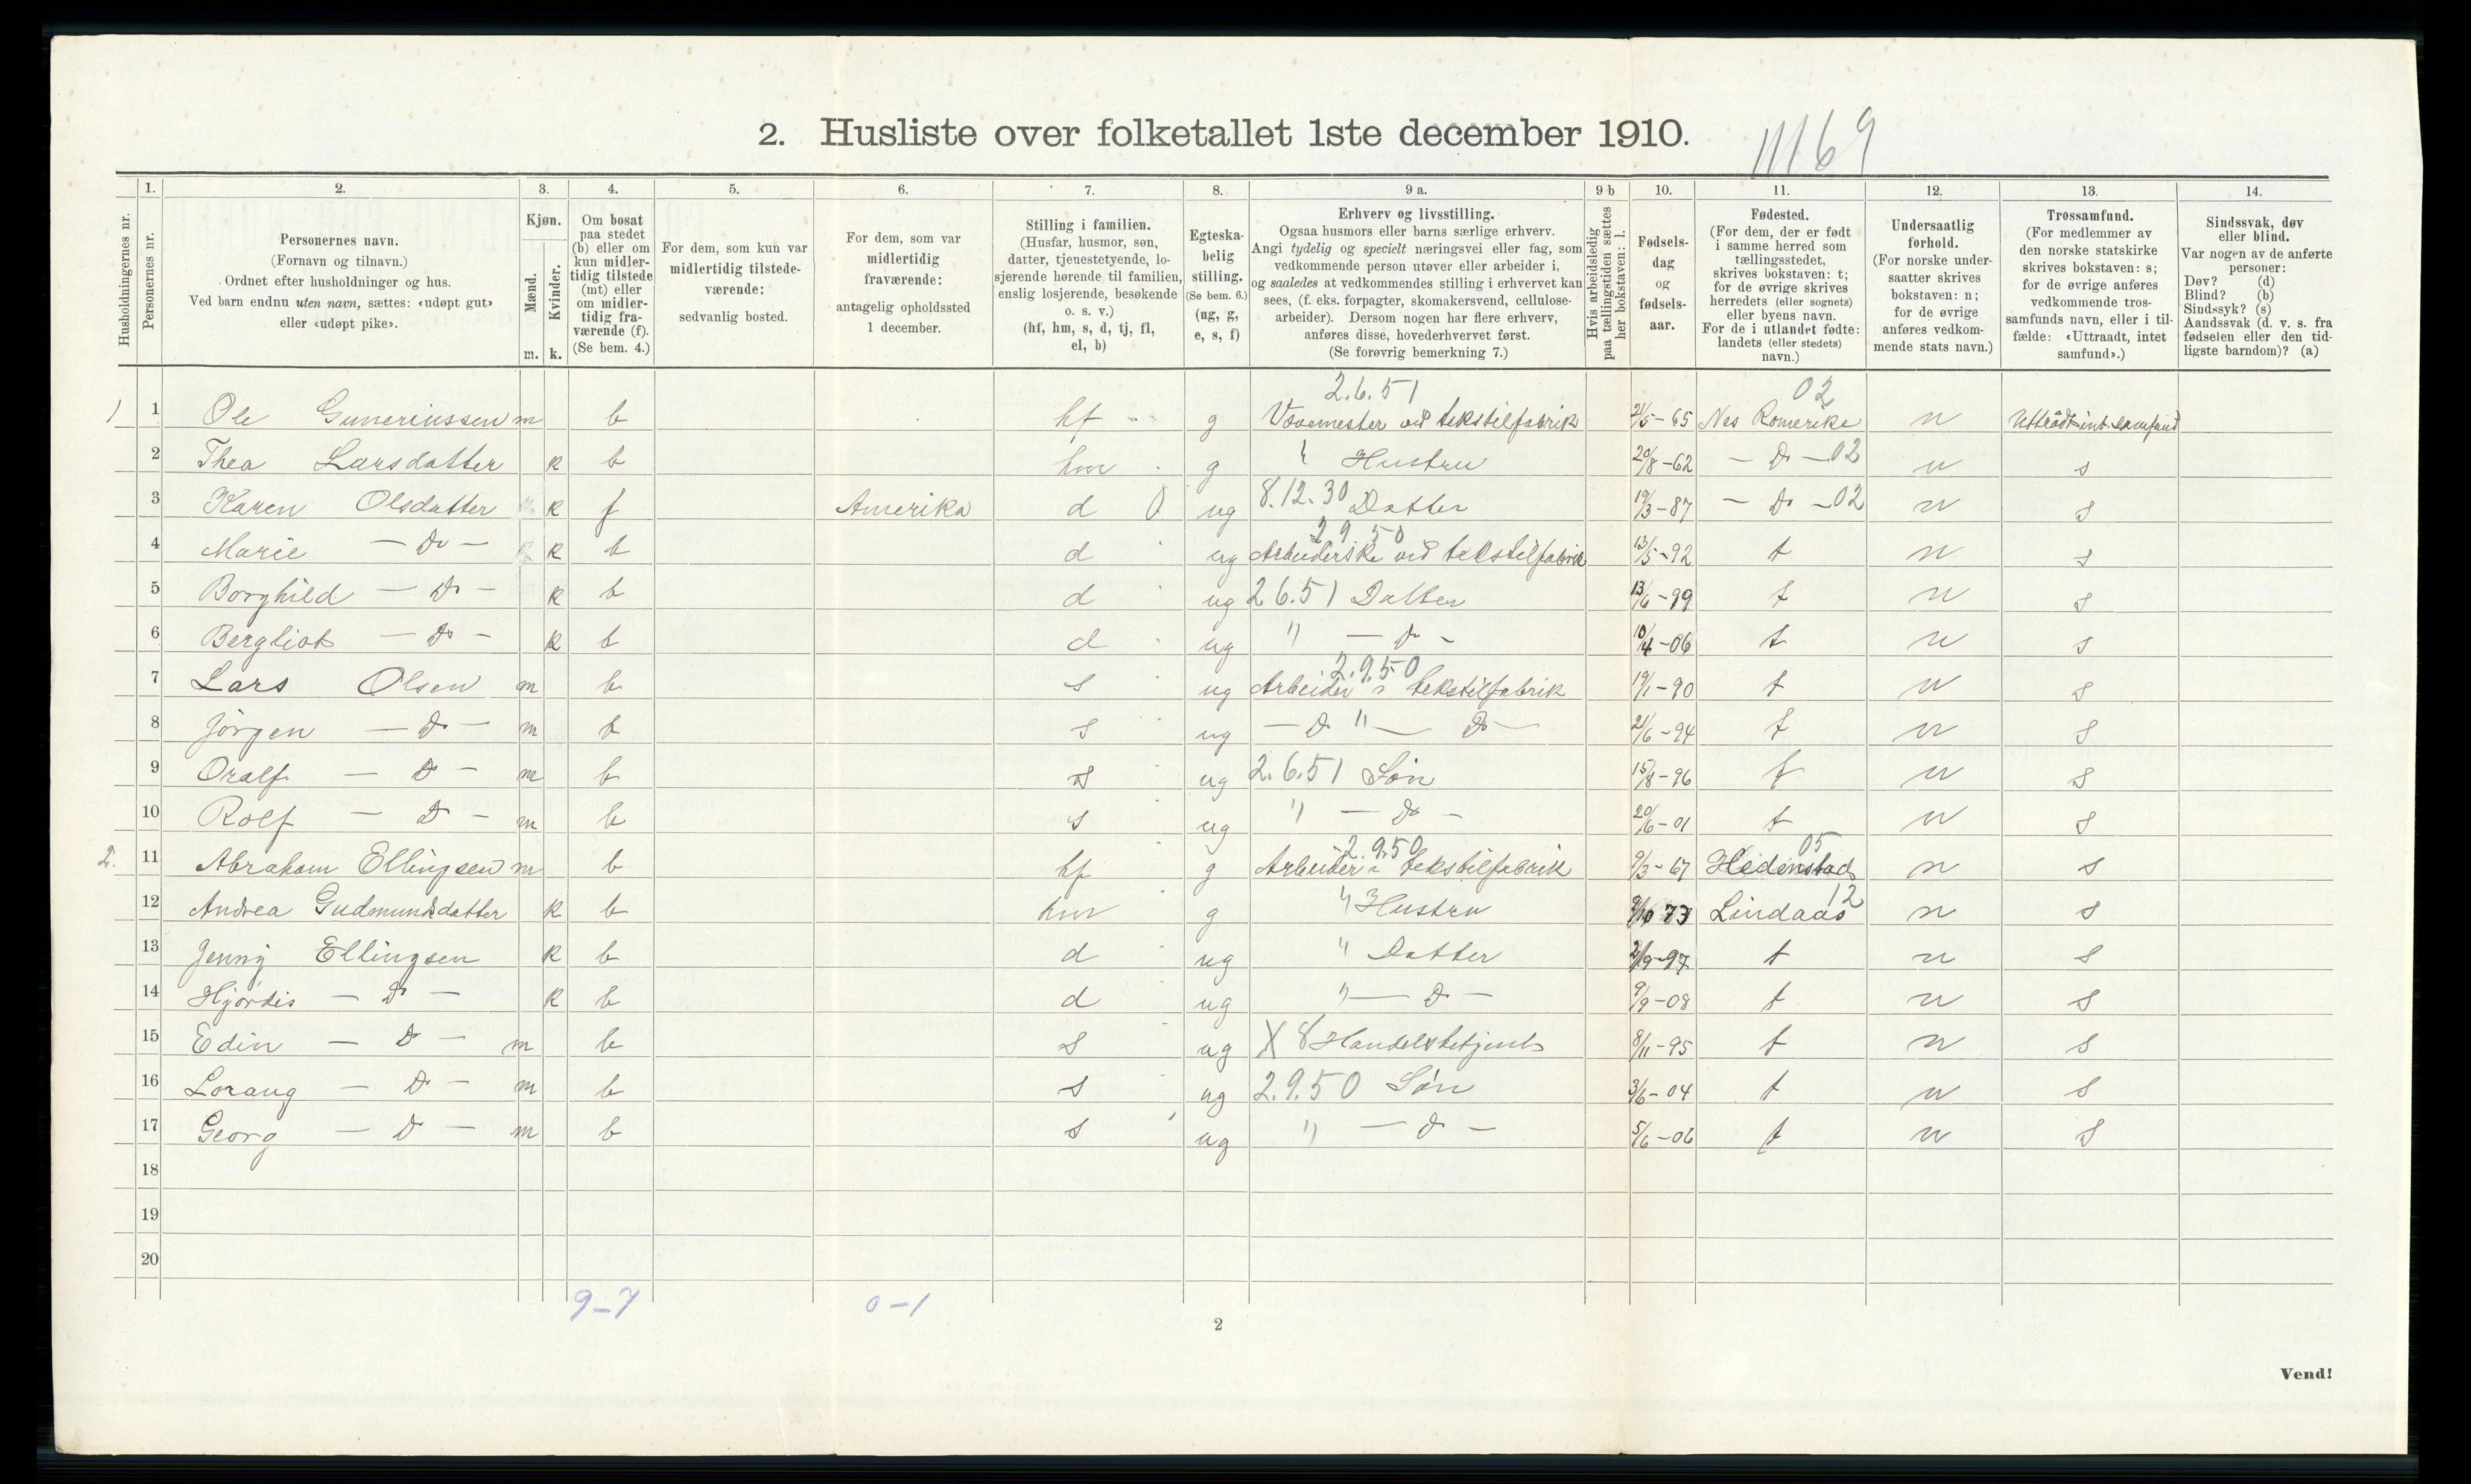 2. Husliste over folketallet 1ste december 1910. 11169
Husholdningernes nr.
1.
Personernes nr.
2.
Personernes navn.
(Fornavn og tilnavn.)
Ordnet efter husholdninger og hus.
Ved barn endnu uten navn, sættes: «udøpt gut»
eller «udøpt pike».
3.
Kjøn.
Mænd.
Kvinder.
m. k.
4.
Om bosat
paa stedet
(b) eller om
kun midler-
tidig tilstede
(mt) eller
om midler-
tidig fra-
værende (f).
(Se bem. 4.)
5.
For dem, som kun var
midlertidig tilstede-
værende:
sedvanlig bosted.
6.
For dem, som var
midlertidig
fraværende:
antagelig opholdssted
1 december.
7.
Stilling i familien.
(Husfar, husmor, søn,
datter, tjenestetyende, lo-
sjerende hørende til familien,
enslig losjerende, besøkende
o. s. v.)
(hf, hm, s, d, tj, fl,
el, b)
8.
Egteska-
belig
stilling.
(Se bem. 6.)
(ug, g,
e, s, f)
9 a.
Erhverv og livsstilling.
Ogsaa husmors eller barns særlige erhverv.
Angi tydelig og specielt næringsvei eller fag, som
vedkommende person utøver eller arbeider i,
og saaledes at vedkommendes stilling i erhvervet kan
sees, (f. eks. forpagter, skomakersvend, cellulose-
arbeider). Dersom nogen har flere erhverv,
anføres disse, hovederhvervet først.
(Se forøvrig bemerkning 7.)
9 b
Hvis arbeidsledig
paa tællingstiden sættes
her bokstaven: l.
10.
Fødsels-
dag
og
fødsels-
aar.
11.
Fødested.
(For dem, der er født
i samme herred som
tællingsstedet,
skrives bokstaven: t;
for de øvrige skrives
herredets (eller sognets)
eller byens navn.
For de i utlandet fødte:
landets (eller stedets)
navn.)
12.
Undersaatlig
forhold.
(For norske under-
saatter skrives
bokstaven: n;
for de øvrige
anføres vedkom-
mende stats navn.)
13.
Trossamfund.
(For medlemmer av
den norske statskirke
skrives bokstaven: s;
for de øvrige anføres
vedkommende tros-
samfunds navn, eller i til-
fælde: «Uttraadt, intet
samfund».)
14.
Sindssvak, døv
eller blind.
Var nogen av de anførte
personer:
Døv? (d)
Blind? (b)
Sindssyk? (s)
Aandssvak (d. v. s. fra
fødselen eller den tid-
ligste barndom)? (a)
2.6.51 02
1) 1 Ole Guneriussen m b hf g Vævemester ved tekstilfabrik 21/5-65 Nes Romerike n Uttrådt int. samfund
2 Thea Larsdatter k b hm g " Hustru 20/8-62 - Do - 02 n s
3 Karen Olsdatter k f Amerika d 0 ug 8.12.30 Datter 19/3-87 - Do - 02 n s
2 9.50
4 Marie - Do - k b d ug Arbeiderske ved tekstilfabrik 13/5-92 t n s
5 Borghild - Do - k b d ug 2 6.51 Datter 13/6-99 t n s
6 Bergliot - Do - k b d ug " - Do - 10/4-06 t n s
2.9.50
7 Lars Olsen m b s ug Arbeider " tekstilfabrik 19/1-90 t n s
8 Jörgen - Do - m b s ug - Do " - Do - 21/6-94 t n s
9 Oralf - Do - m b s ug 2.6.51 Sön 15/8-96 t n s
10 Rolf - Do - m b s ug " - Do - 20/6-01 t n s
2.9.50 05
2. 11 Abraham Ellingsen m b hf g Arbeider " tekstilfabrik 9/3-67 Hedenstad n s
12 Andrea Gudmundsdatter k b hm g " Hustru 9/10 73 Lindaas 12 n s
13 Jenny Ellingsen k b d ug " Datter 21/9-97 t n s
14 Hjördis - Do - k b d ug " - Do - 9/9-08 t n s
15 Edin - Do - m b s ug X 8 Handelsbetjent 8/11-95 t n s
16 Lorang - Do - m b s ug 2.9.50 Sön 3/6-04 t n s
17 Georg - Do - m b s ug " - Do - 5/6-06 t n s
18
19
20
9-7 0-1
2
Vend!